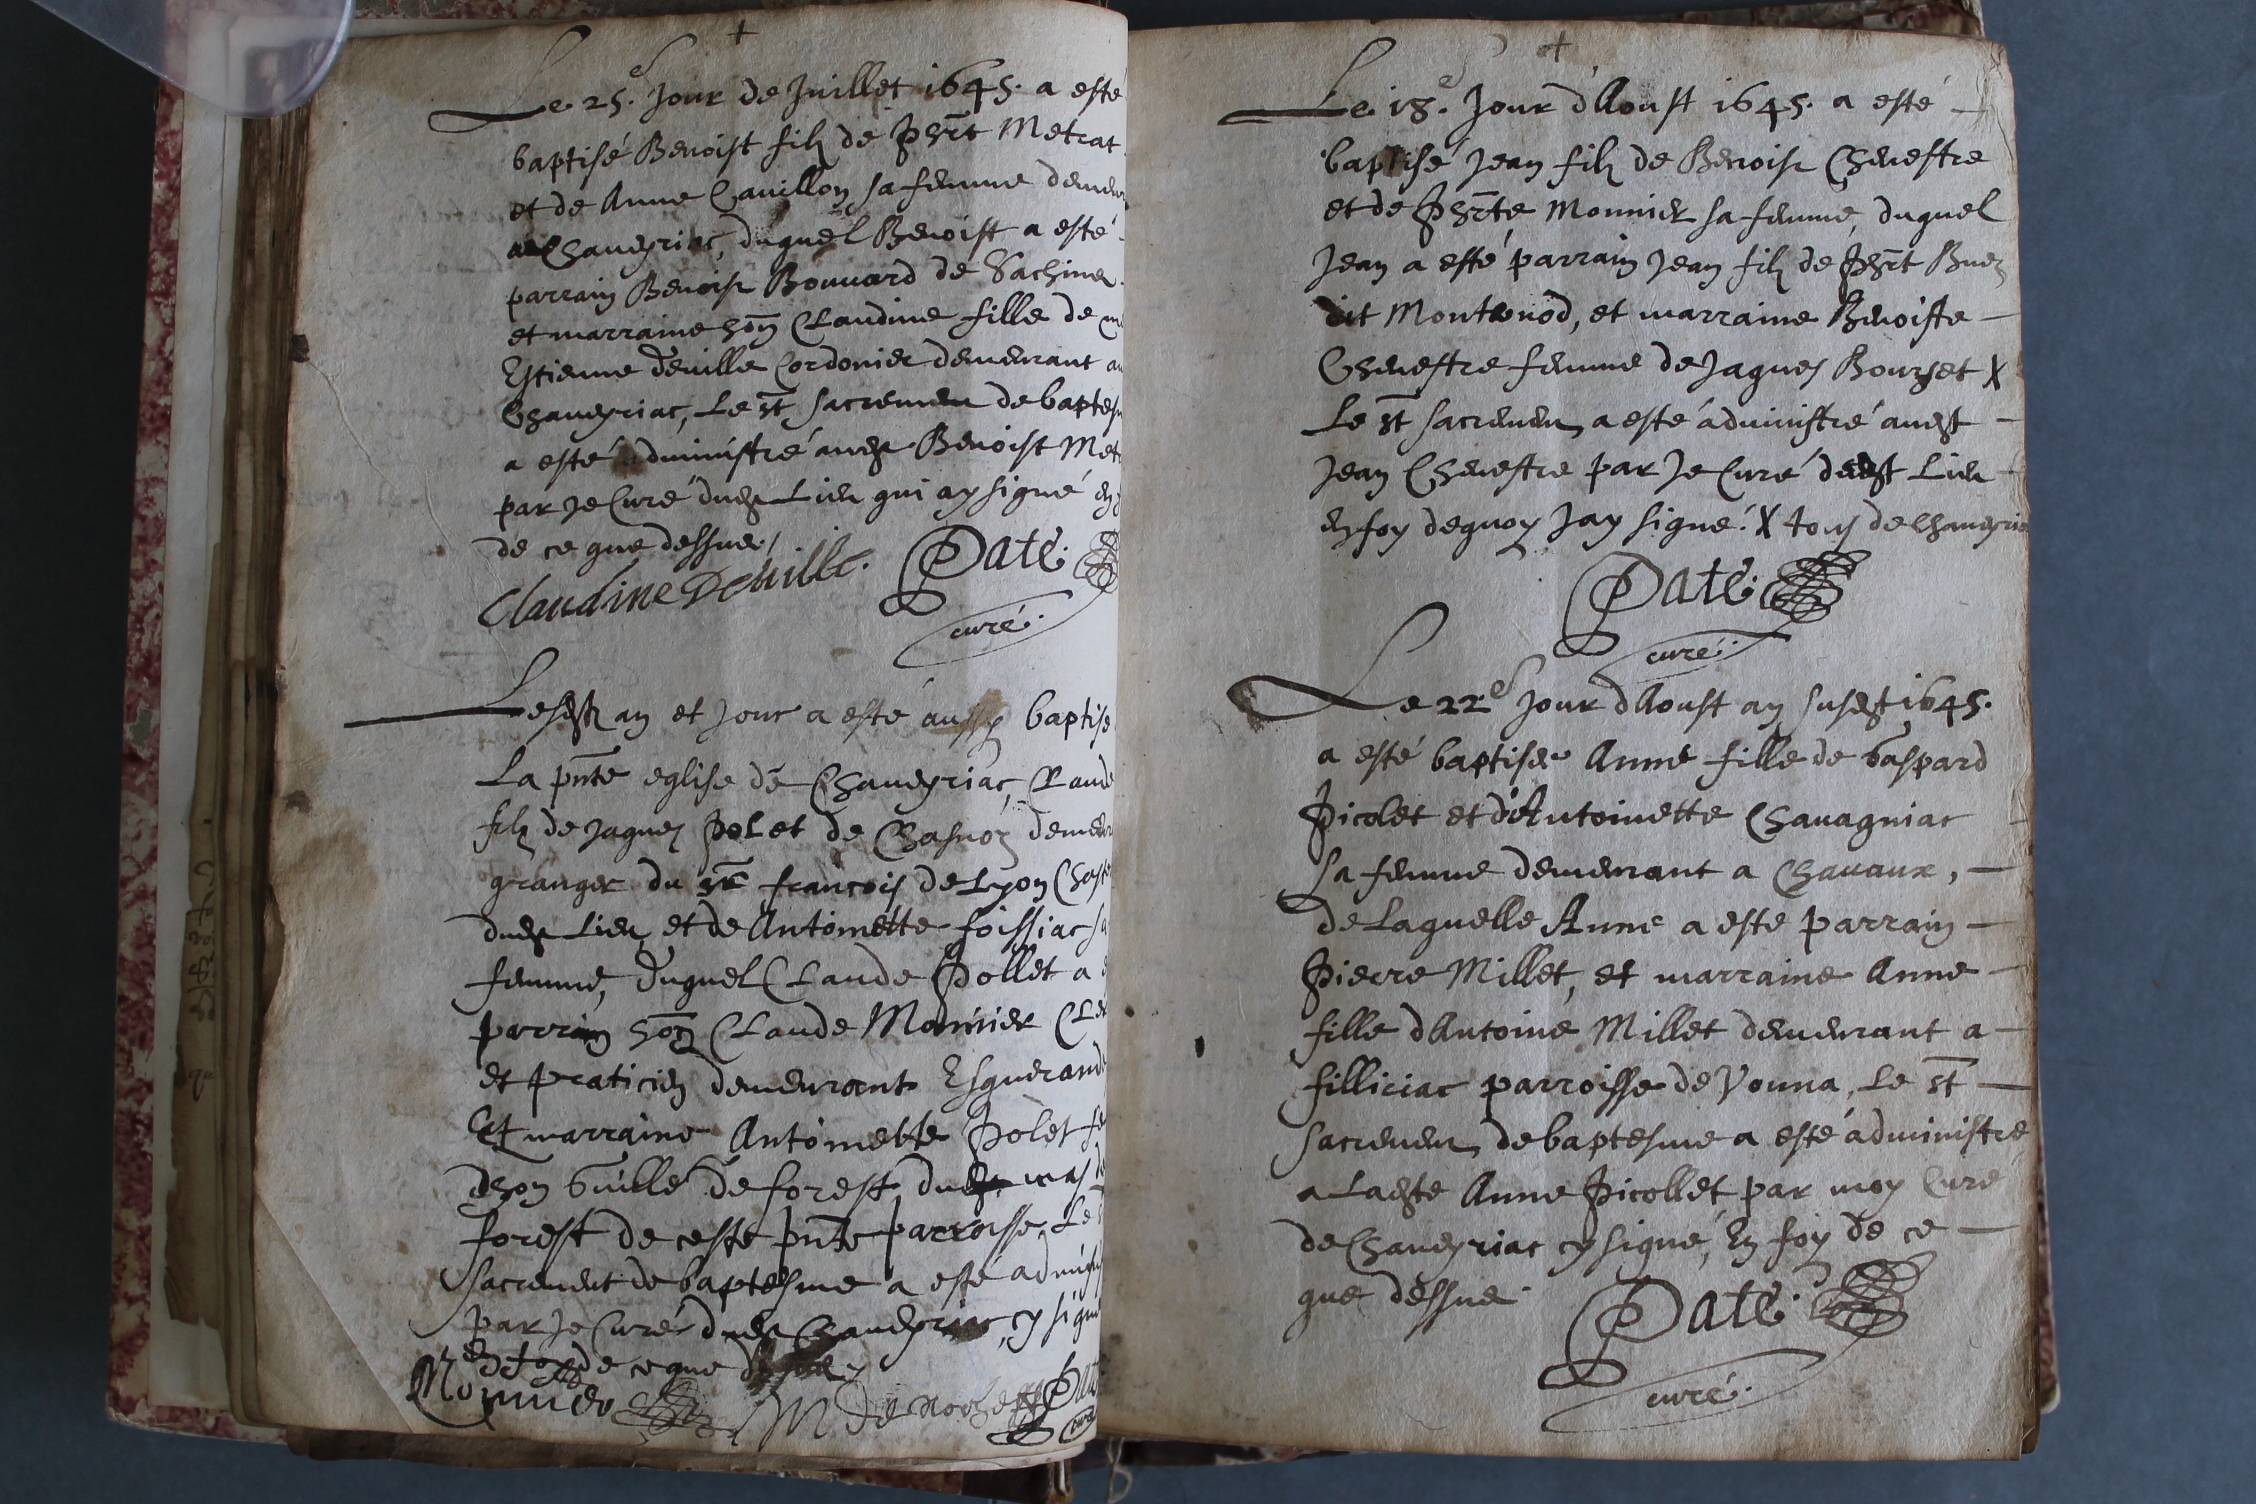 +
Le 25.e Jour de Juillet 1645. a esté
baptisé Benoist filz de Phi͞rt Metrat
et de Anne Cauillon sa femme demeur
a Chaueyriac, duquel Benoist a esté
parrain Benoist Bouuard de Sachine
et marraine hon͞ Claudine fille de
Estienne deuille Cordonier demeurant au
Chaueyriac, Le s͞t sacrement de baptes
a esté administré audt Benoist Met
par Je Curé dudt Lieu qui ay signé en
de ce que dessus /
Claudine Deuille. Paté.
curé.
Lesdt an et Jour a esté aussy baptisé
La pn͞te eglise de Chaueyriac, Claude
filz de Jaques Polet de demeur
granger du s͞r francois de Lyon Chast
dudt Lieu et de Antoinette foissiac sa
femme, duquel Claude Pollet a
parrain hon͞ Claude Monnier Cler
et praticien demeurant Esguerand
Et marraine Antoinette Polet fe
dhon Guille de forest du mas de
forest de ceste pn͞te parroisse, Le
sacrement de baptesme a esté admi
par Je Curé dudt Chaueyriac, cy signé
en foy de ce que
Monnier Paté
curé
+
Le 18.e Jour d'Aoust 1645. a esté
baptisé Jean filz de Benoist Cheuestre
et de Phi͞rte Monnier sa femme, duquel
Jean a esté parrain Jean filz de Phi͞rt Buez
dit Montenod, et marraine Benoiste
Cheuestre femme de Jaques Bourset X
Le s͞t sacrement a esté administré audt
Jean Cheuestre par Je Curé dudt Lieu
en foy dequoy Jay signé. X tous de Chaueyria
Paté.
curé.
Le 22e Jour d'Aoust an susdt 1645.
a esté baptisee Anne fille de Gaspard
Picolet et d'Antoinette Chauagniac
sa femme demeurant a Chauaux,
de Laquelle Anne a este parrain
Pierre Millet, et marraine Anne
fille dAntoine Millet demeurant a
filliciac parroisse de Vonna, Le s͞t
sacrement de baptesme a esté administré
a Ladte Anne Picollet par moy Curé
de Chaueyriac cy signé, En foy de ce
que dessus.
Paté.
curé.